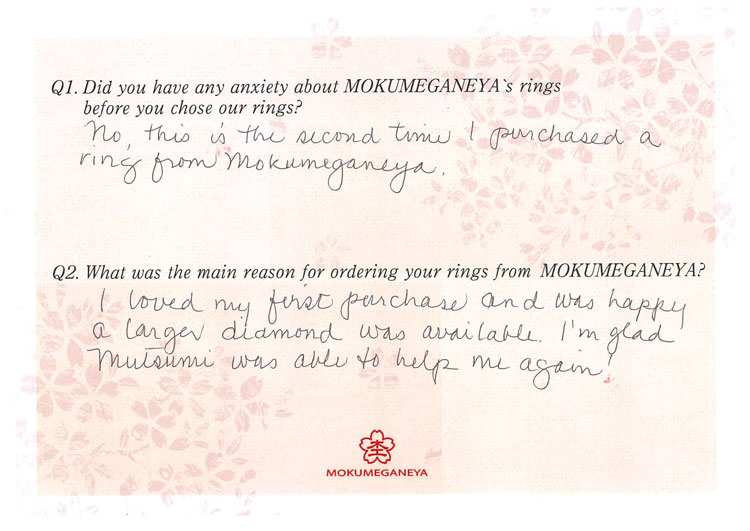 Q1. Did you have any anxiety about MOKUMEGANEYA`s rings
before you chose our rings?
No, this is the second time I purchased a
ring from Mokumeganeya.
Q2. What was the main reason for ordering your rings from MOKUMEGANEYA?
I loved my first purchase and was happy
a larger diamond was available. I'm glad
Mutsumi was able to help me again!
MOKUMEGANEYA